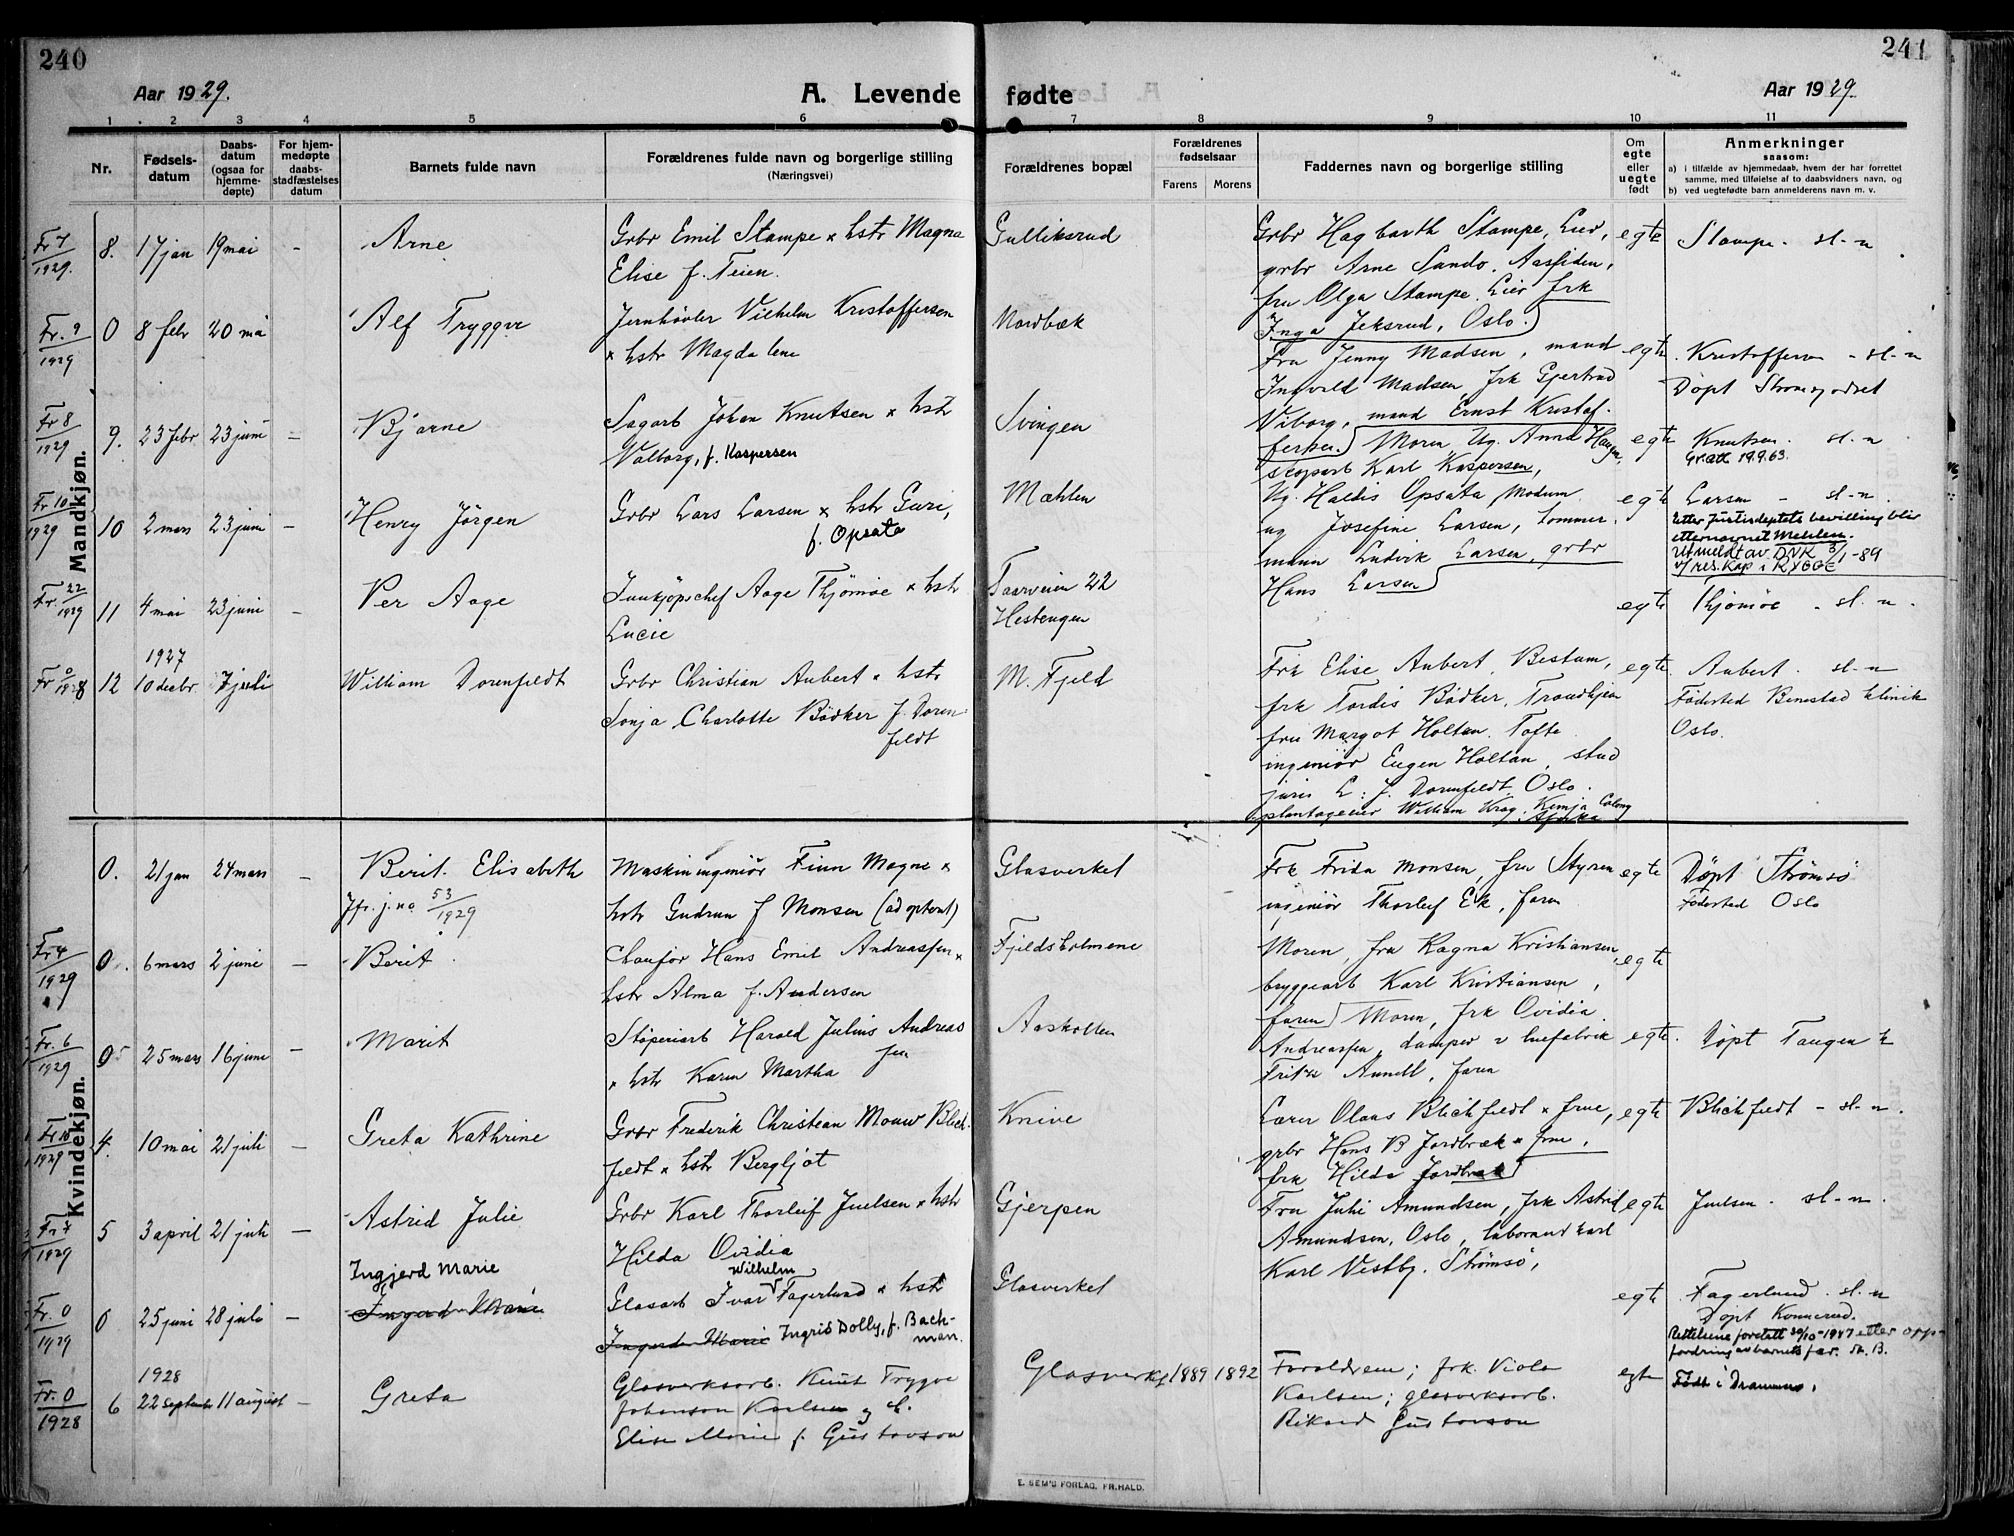 240
241
Aar 1929.
A. Levende fødte
Aar 1929
1 2 3 4 5 6 7 8 9 10 11
Nr.
Fødsels-
datum
Daabs-
datum
(ogsaa for
hjemme-
døpte)
For hjem-
medøpte
daabs-
stadfæstelses
datum
Barnets fulde navn
Forældrenes fulde navn og borgerlige stilling
(Næringsvei)
Forældrenes bopæl
Forældrenes
fødselsaar
Farens Morens
Faddernes navn og borgerlige stilling
Om
egte
eller
uegte
født
Anmerkninger
saasom:
a) i tilfælde av hjemmedaab, hvem der har forrettet
samme, med tilføielse af to daabsvidners navn, og
b) ved uegtefødte barn anmelderens navn m. v.
Mandkjøn.
Fr 7
1929.
8. 17 jan 19 mai – Arne
Grbr Emil Stampe x hstr Magna
Elise f. Teien.
Gulliksrud
Grbr Hagbarth Stampe, Lier,
grbr Arne Sando, Aassiden,
fru Olga Stampe, Lier frk
Inga Jeksrud, Oslo.
egte
Stampe - sl-n
Fr. 9
1929
0 8 febr 20 mai Alf Tryggve
Jernhøvler Vilhelm Kristoffersen
x hstr Magdalene
Nordbæk
Fru Jenny Madsen, mand
Ingvald Madsen frk Gjertrud
Viborg, mand Ernst Kristof-
fersen.
egte
Kristoffersen - sl-n
Døpt Strømsgodset
Fr 8
1929
9. 23 febr 23 juni – Bjarne
Sagarb Johan Knutsen x hstr
Valborg, f. Kaspersen
Svingen
Moren, Ug. Anna Haugen,
Karl Kaspersen,
egte
Knutsen. sl-n
Gr.att. 19.9.63.
Fr 10
1929
10 2 mars 23 juni – Henry Jörgen
Grbr Lars Larsen x hstr Guri,
f. Opsata
Mæhlen
Ug. Haldis Opsata Modum
ug Josefine Larsen, tommer-
mann Ludvik Larsen, grbr
Hans Larsen
egte
Larsen - sl-n
Etter Justisdeptets bevilling blir
etternavnet Mehlen.
Utmeldt av DNK 3/1-89
v/ res.kap i RYGGE
Fr. 22
1929
11 4 mai 23 juni – Per Aage
Innkjøpschef Aage Thjømøe x hstr
Lucie
Taarveien 22
Hestengen
egte
Thjømøe - sl-n.
Fr 0
1928
12 1927
10 decbr 7 juli William Dorenfeldt
Grbr Christian Aubert x hstr
Sonja Charlotte Bödker f. Doren-
feldt
M. Fjeld
Frk Elise Aubert, Bestum,
frk Tordis Bödker, Trondhjem
fru Margot Holtan, Tofte
ingeniör Eugen Holtan, stud
juris L. J. Dorenfeldt Oslo.
plantageeier William Krag. Kenija Colony
Afrika
egte
Aubert. sl-n
Fødested Benestad klinik
Oslo.
Kvindekjøn.
0. 21 jan 24 mars – Berit Elisabeth
Jfr. j.no 53/1929
Maskiningeniör Finn Magne x
hstr Gudrun f Monsen (adoptent)
Glasverket
Frk Frida Monsen, fru Styren
ingeniör Thorleif Ek, faren
egte
Døpt Strømsö
Fødested Oslo
Fr 4
1929
0. 6 mars 2 juni – Berit
Chauför Hans Emil Andreassen x
hstr Alma f. Andersen
Fjeldsholmene
Moren, fru Ragna Kristiansen,
bryggearb Karl Kristiansen,
faren
egte
Fr. 6
1929
0 25 mars 16 juni – Marit
Støperiarb Harald Julius Andreas
sen
x hstr Karen Martha
Aaskollen
Moren, frk Ovidia
Andreassen, damper v huefabrik
Fritz Aunell, faren
egte.
Døpt Tangen k
Fr 18
1929
4. 10 mai 21 juli – Greta Kathrine
Grbr Frederik Christian Mouw Blich-
feldt x hstr Bergljot
Knive
Lærer Olaus Blichfeldt x frue,
grbr Hans B Jordbræk x frue,
frk Hilda Jordbræk
egte
Blichfeldt - sl-n.
Fr 7
1929
5 3 april 21 juli – Astrid Julie
Grbr Karl Thorleif Juelsen x hstr
Hilda Ovidia
Gjerpen
Fru Juli Amundsen, frk Astrid
Amundsen, Oslo, laborant Karl
Karl Vestby. Strømsø,
egte
Juelsen - sl-n.
Fr. 0
1929
0 25 juni 28 juli – Ingjerd Marie
Ingerd Marie
Wilhelm
Glasarb Ivar Fagerlund x hstr
Ingerd Marie Ingrid Dolly, f. Bach-
man.
Glasverket
egte
Fagerlund. sl-n
Døpt Konnerud.
Rettelsene foretatt 30/10-1947 etter opp-
fordring av barnets far.
Fr. 0
1928
6 1928
22 september 11 august – Greta
Glasverksarb. Knut Trygve
Johanson Karlsen og h.
Elise Marie f. Gustavson
Glasverket 1889 1892
Foreldrene; frk. Viola
Karlsen; glasverksarb.
Rikard Gustavson
egte
Født i Drammen.
E. SEM'S FORLAG, FR.HALD.